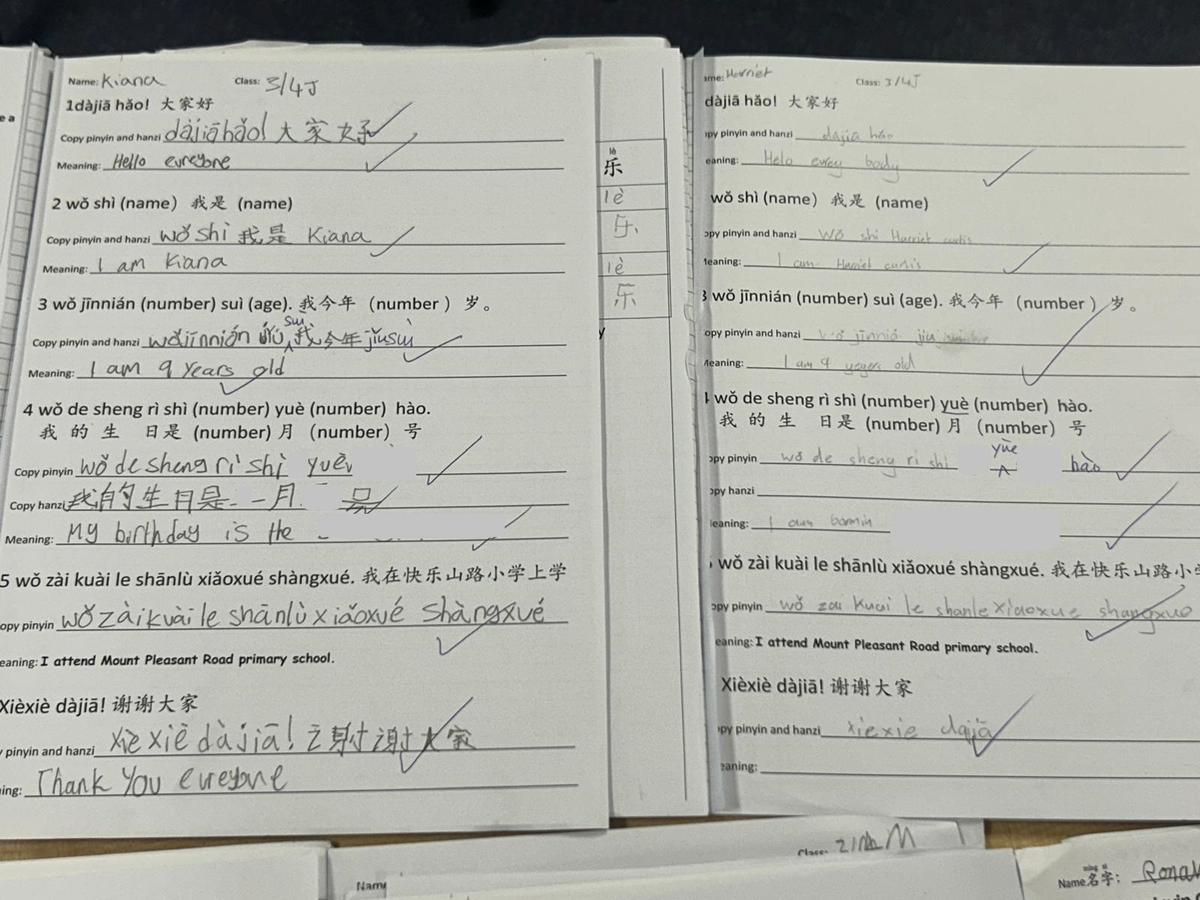 e a
Name: Kiana Class: 3/4J
1dàjiā hǎo! 大家好
Copy pinyin and hanzi dàjiāhǎo! 大家好
Meaning: Hello evreyone
2 wǒ shì (name) 我是 (name)
Copy pinyin and hanzi wǒ shì 我是 Kiana
Meaning: I am Kiana
3 wǒ jīnnián (number) suì (age). 我今年 (number ) 岁。
Copy pinyin and hanzi wǒjīnnián jiǔ suì 我今年jiǔsuì
Meaning: I am 9 years old
4 wǒ de sheng rì shì (number) yuè (number) hào.
我 的 生 日是 (number) 月 (number) 号
Copy pinyin wǒ de sheng rì shì yuè
Copy hanzi 我的生日是 一月 号
Meaning: My birthday is the
5 wǒ zài kuài le shānlù xiǎoxué shàngxué. 我在快乐山路小学上学
opy pinyin wǒ zài kuài le shānlù xiǎoxué shàngxué
eaning: I attend Mount Pleasant Road primary school.
Xièxiè dàjiā! 谢谢大家
y pinyin and hanzi xiè xiè dàjiā! 谢谢大家
ning: Thank You evreyone
lè
乐
lè
乐
lè
乐
y
ame: Harriet Class: 3/4J
dàjiā hǎo! 大家好
opy pinyin and hanzi dajia hǎo
eaning: Helo evrey body
wǒ shì (name) 我是 (name)
opy pinyin and hanzi Wǒ shi Harriet curtis
Meaning: I am Harriet curtis
3 wǒ jīnnián (number) suì (age). 我今年 (number ) 岁。
opy pinyin and hanzi wǒ jīnniá jiu
Meaning: I am 9 yeyers old
4 wǒ de sheng rì shì (number) yuè (number) hào.
我 的 生 日是 (number) 月 (number) 号
opy pinyin wǒ de sheng ri shi yüe hào
opy hanzi
eaning: I am bormin
wǒ zài kuài le shānlù xiǎoxué shàngxué. 我在快乐山路小学
opy pinyin wǒ zai Kuai le shanle xiaoxue shangxue
eaning: I attend Mount Pleasant Road primary school.
Xièxiè dàjiā! 谢谢大家
opy pinyin and hanzi xiexie dajiā
eaning:
Class: 2/ M
Name
míng zì
Name名字: Ronal